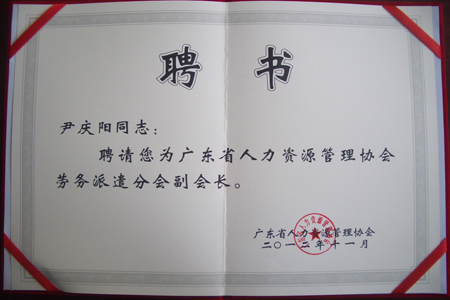 聘 书
尹庆阳同志：
聘请您为广东省人力资源管理协会
劳务派遣分会副会长。
广东省人力资源管理协会
二〇一二年十一月